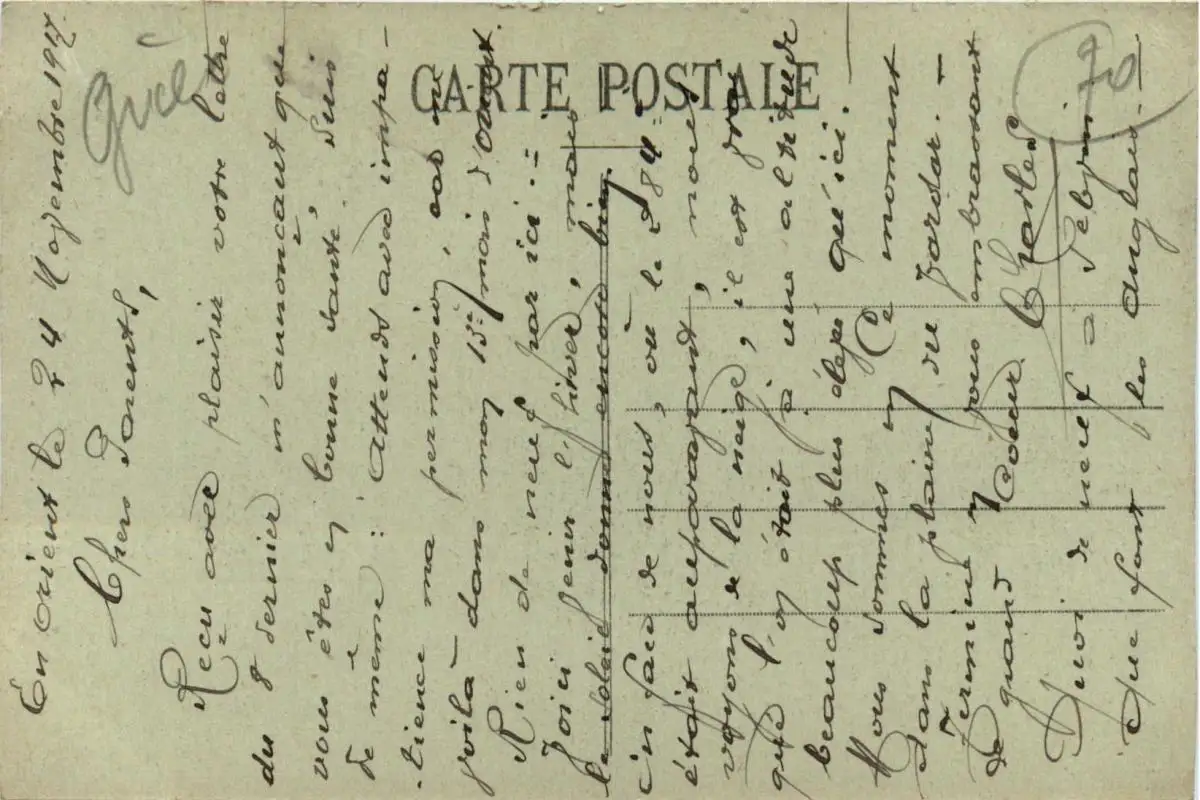 CARTE POSTALE
En orient le 24 Novembre 1917
Grèce
Chers Parents,
Reçu avec plaisir votre lettre
du 8 dernier m'annonçant que
vous êtes en bonne santé, suis
de même : Attends avec impa-
-tience ma permission, car me
voilà dans mon 13è mois d'orient.
Rien de neuf par ici. =
Voici venir l'hiver, mais
le soleil donne encore bien.
En face de nous, où le 284è
était auparavant, nous
voyons de la neige, il est vrai
que l'on était à une altitude
beaucoup plus élevée qu'ici. -
Nous sommes en ce moment
dans la plaine du Vardar. -
Termine en vous embrassant
de grand coeur Charles
Quoi de neuf à
Que font les anglais. -
70